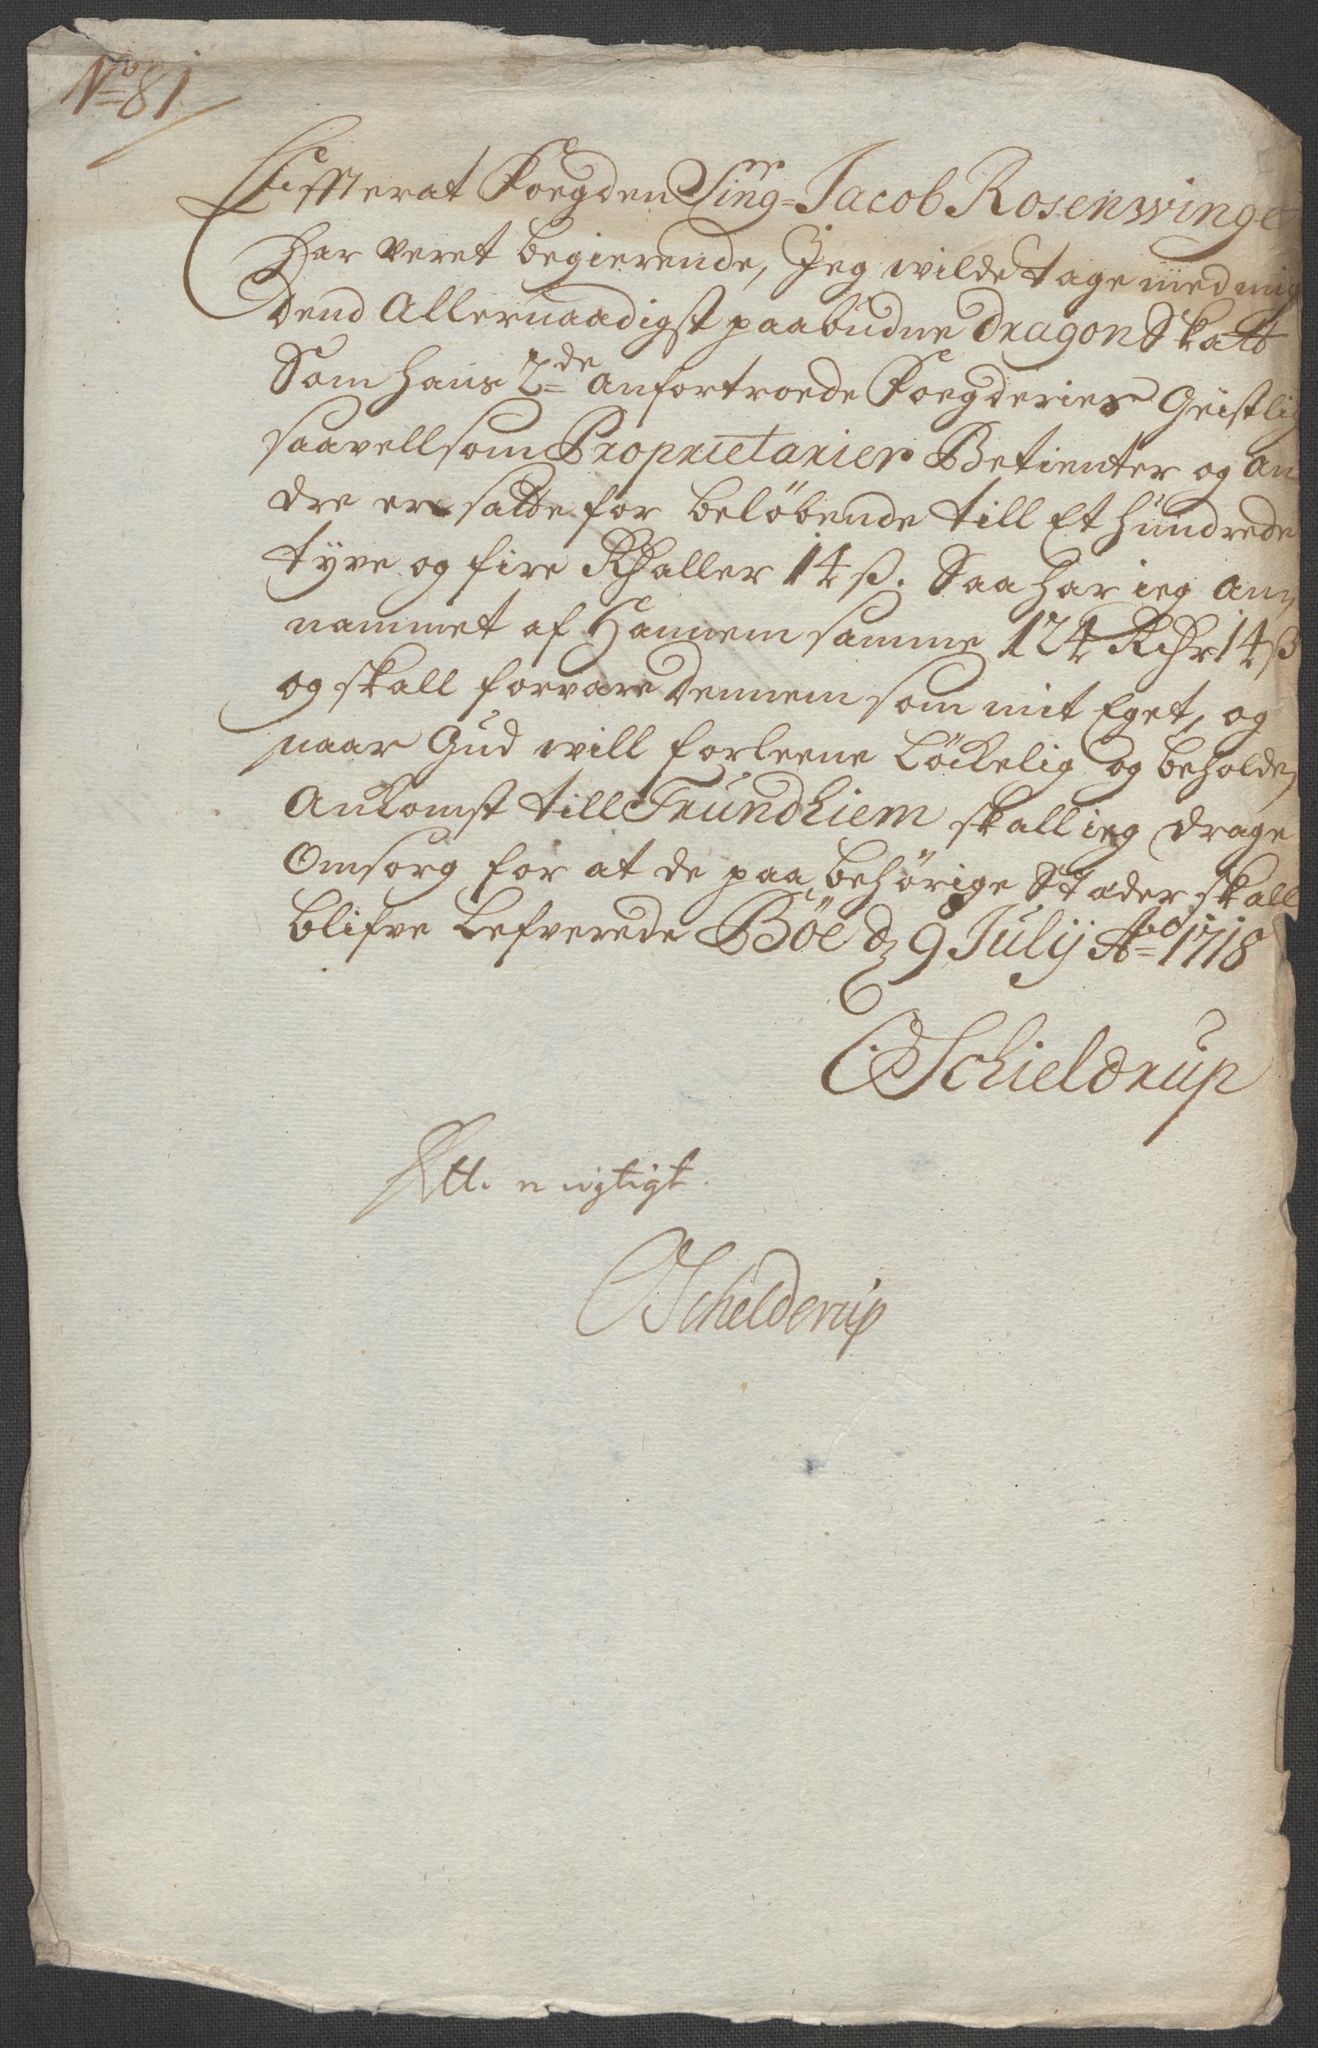 No 81
Effterat Foegden Sing.r Jacob Rosenwinge
Har veret begierende, Jeg wilde tage med mig
dend Allernaadigst paabudne dragon Skatt
Som hans 2.de anfortroede Foegderies Geistlig
saavell som Proprietarier Betienter og An
dre er satte for beløbende till Et hundrede
tyve og fire Rdhaller 14 ß. Saa har ieg An,
nammet af Hannem samme 124 Rdhr 14 ß
og skall forvare dennem som mit Eget, og
naar Gud will forleene Løckelig og beholden
Ankomst till Trundhiem skall ieg drage
Omsorg for at de paa behørige Stæder skall
blifve Lefverede Böe d. 9 Julij Ao 1718
Schieldrup
rigtigt.
Schelderup